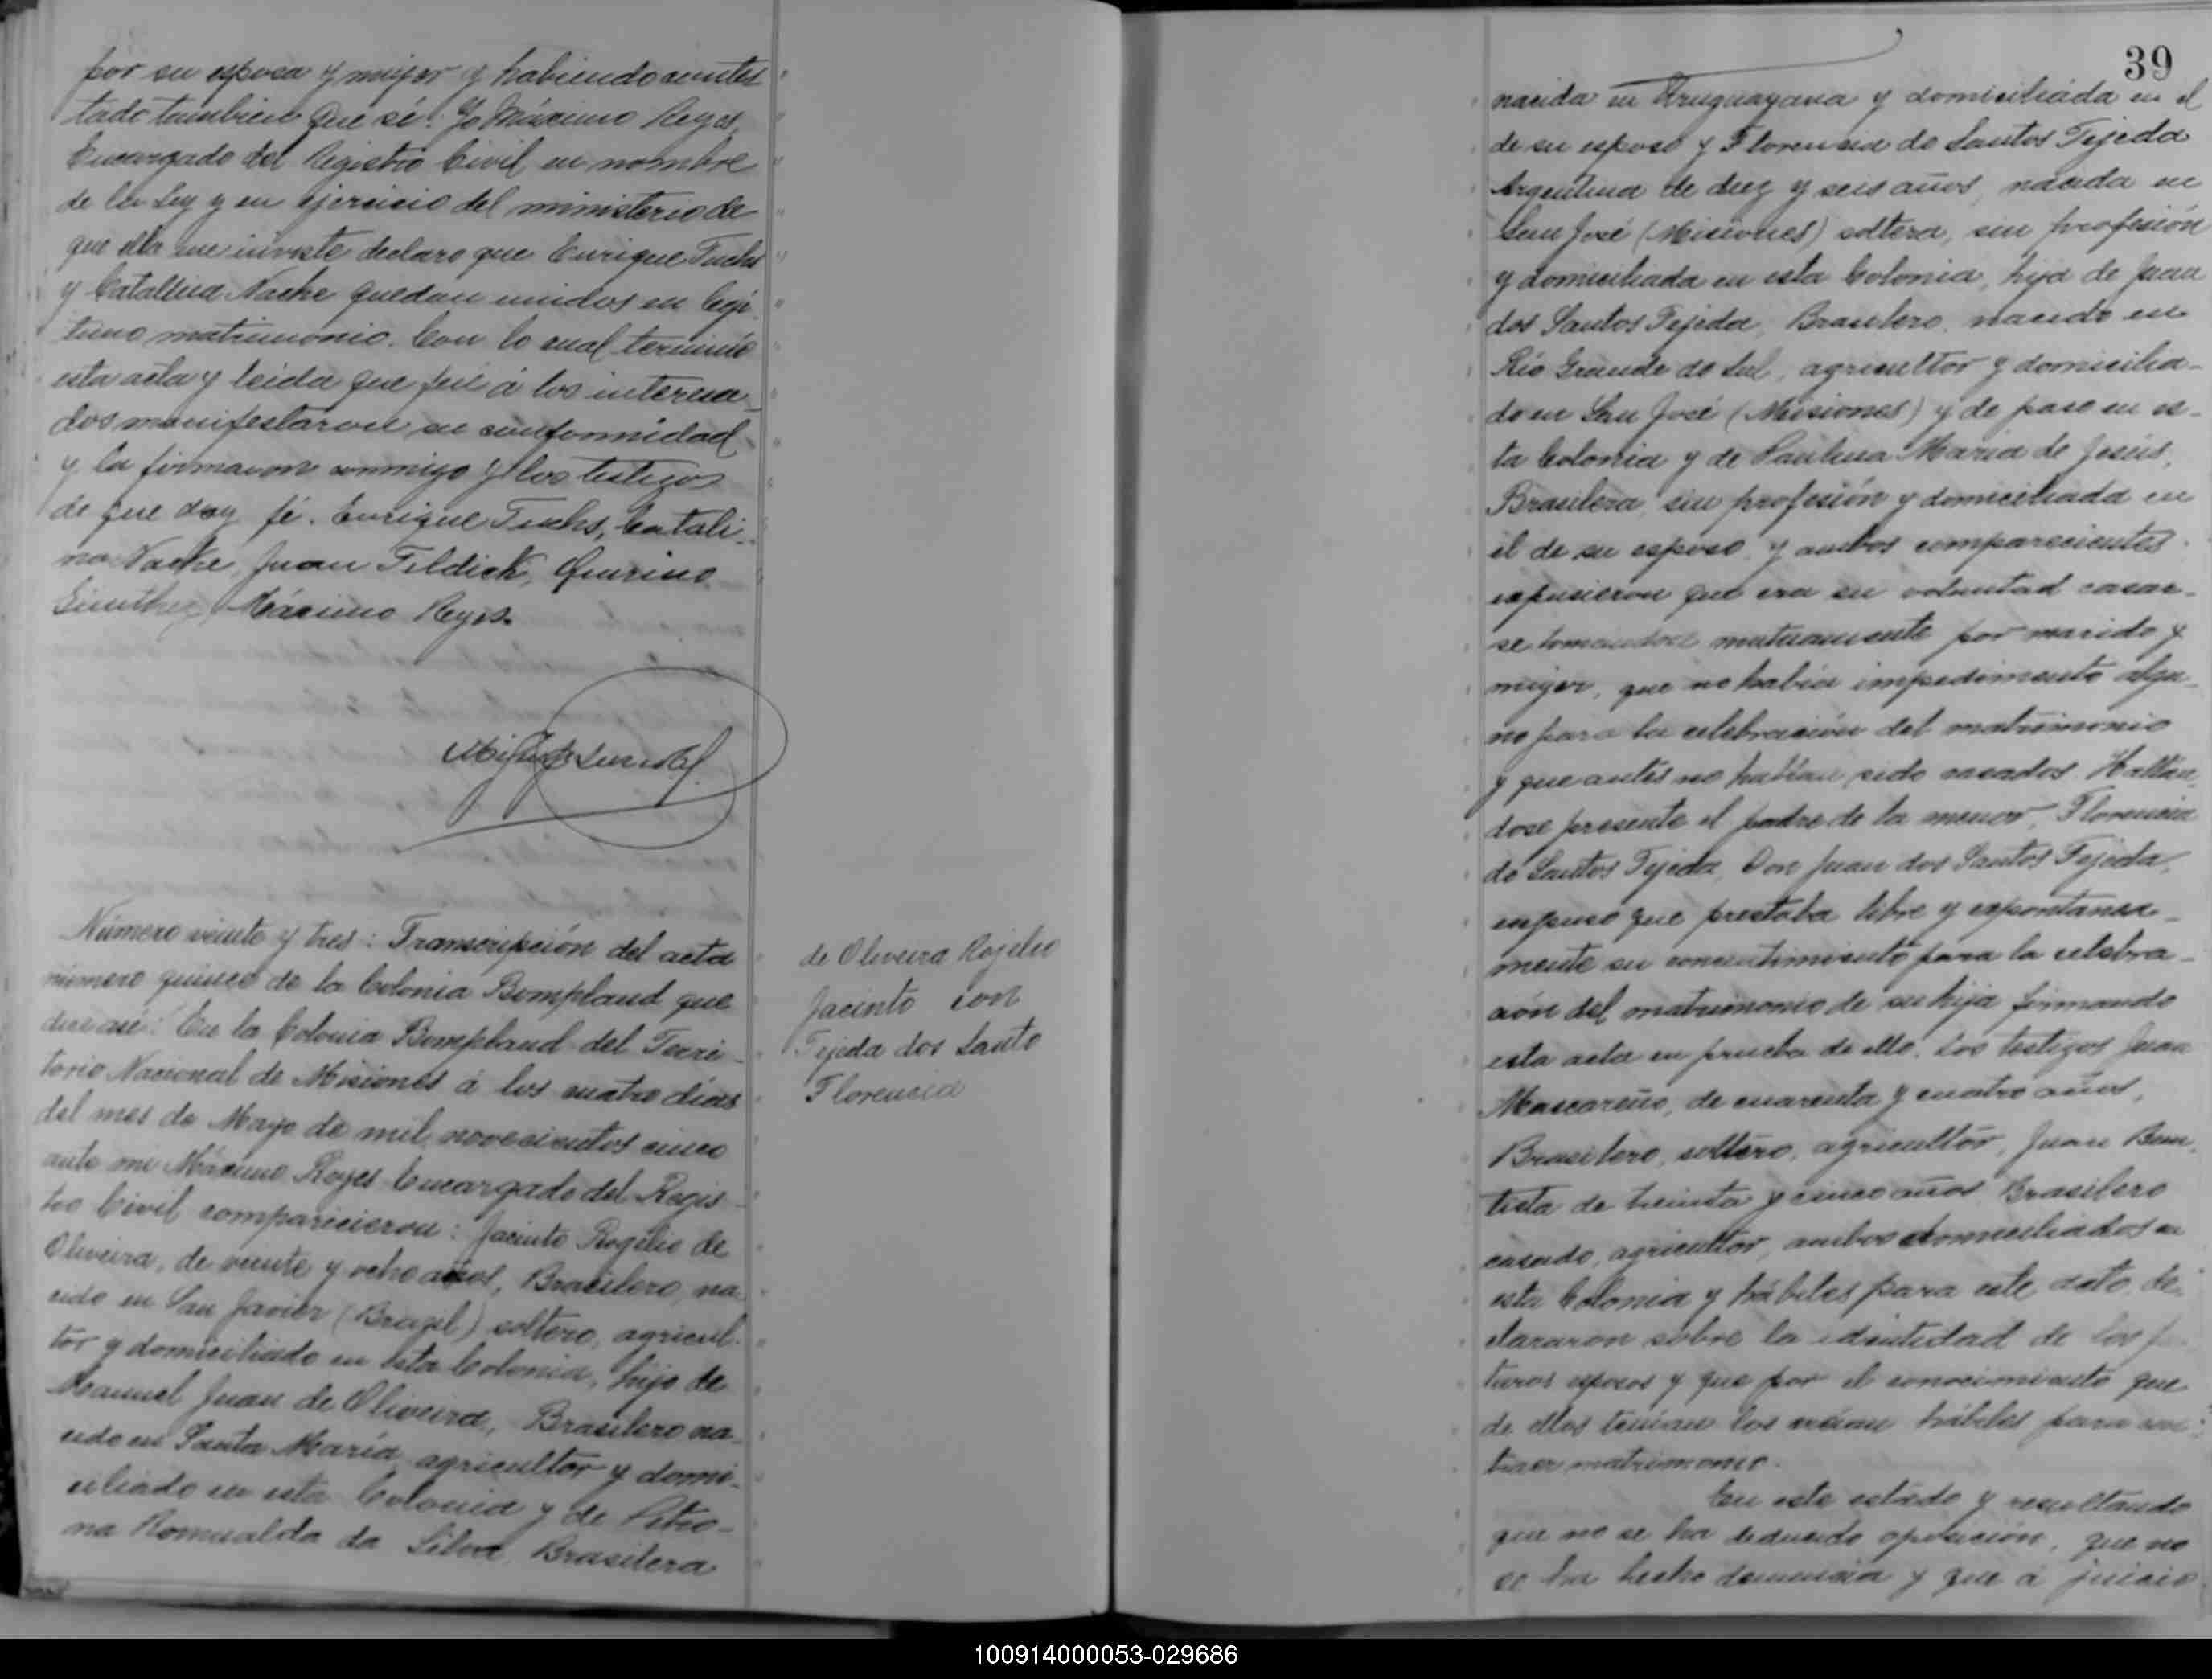 por su esposa y mujer y habiendo contes
tado tambien que sé: Yo Máximo Reyes,
Encargado del Registro Civil en nombre
de la Ley y en ejercicio del ministerio de
que ella me inviste declaro que Enrique Fuchs
y Catalina Nacke quedan unidos en legí
timo matrimonio. Con lo cual terminó
esta acta y leida que fué á los interesa
dos manifestaron su conformidad
y la firmaron conmigo y los testigos
de que doy fé. Enrique Fuchs, Catali-
na Nacke, Juan Fildich,
Máximo Reyes.
Número veinte y tres: Transcripción del acta
número quince de la Colonia Bompland que
dice así: En la Colonia Bompland del Terri-
torio Nacional de Misiones á los cuatro dias
del mes de Mayo de mil novecientos cinco
ante mi Máximo Reyes Encargado del Regis-
tro Civil comparicieron: Jacinto Rogelio de
Oliveira, de veinte y ocho años, Brasilero, na
cido en San Javier (Brazil) soltero, agricul-
tor y domiciliado en esta Colonia, hijo de
Manuel Juan de Oliveira, Brasilero na-
cido en Santa María agricultor y domi-
ciliado en esta Colonia y de Petro-
na Romualda da Silva Brasilera
de Oliveira Rojelio
Jacinto con
Tejeda dos Santo
Florencia
39
nacida en Uruguayana y domiciliada en el
de su esposo y Florencia do Santos Tejeda
Argentina de diez y seis años, nacida en
San José (Misiones) soltera, sin profesión
y domiciliada en esta Colonia, hija de Juan
dos Santos Tejeda, Brasilero, nacido en
Río Grande do Sul, agricultor y domicilia-
do en San José (Misiones) y de paso en es-
ta Colonia y de Paulina Maria de Jesús,
Brasilera, sin profesión y domiciliada en
el de su esposo, y ambos comparecientes
expusieron que era su voluntad casar-
se tomandose mutuamente por marido y
mujer, que no había impedimento algu-
no para la celebración del matrimonio
y que antes no habían sido casados. Hallán
dose presente el padre de la menor, Florencia
do Santos Tejeda, Don Juan dos Santos Tejeda,
expuso que prestaba libre y espontanea-
mente su consentimiento para la celebra-
ción del matrimonio de su hija firmando
esta acta en prueba de ello. Los testigos Juan
Mascareño, de cuarenta y cuatro años,
Brasilero, soltero, agricultor, Juan Bau
tista de treinta y cinco años Brasilero
casado, agricultor, ambos domiciliados en
esta Colonia y hábiles para este acto, de-
clararon sobre la identidad de los fu
turos esposos y que por el conocimiento que
de ellos tenían los creían hábiles para con
traer matrimonio.
En este estado y resultando
que no se ha deducido oposición, que no
se ha hecho denuncia y que á juicio
100914000053-029686